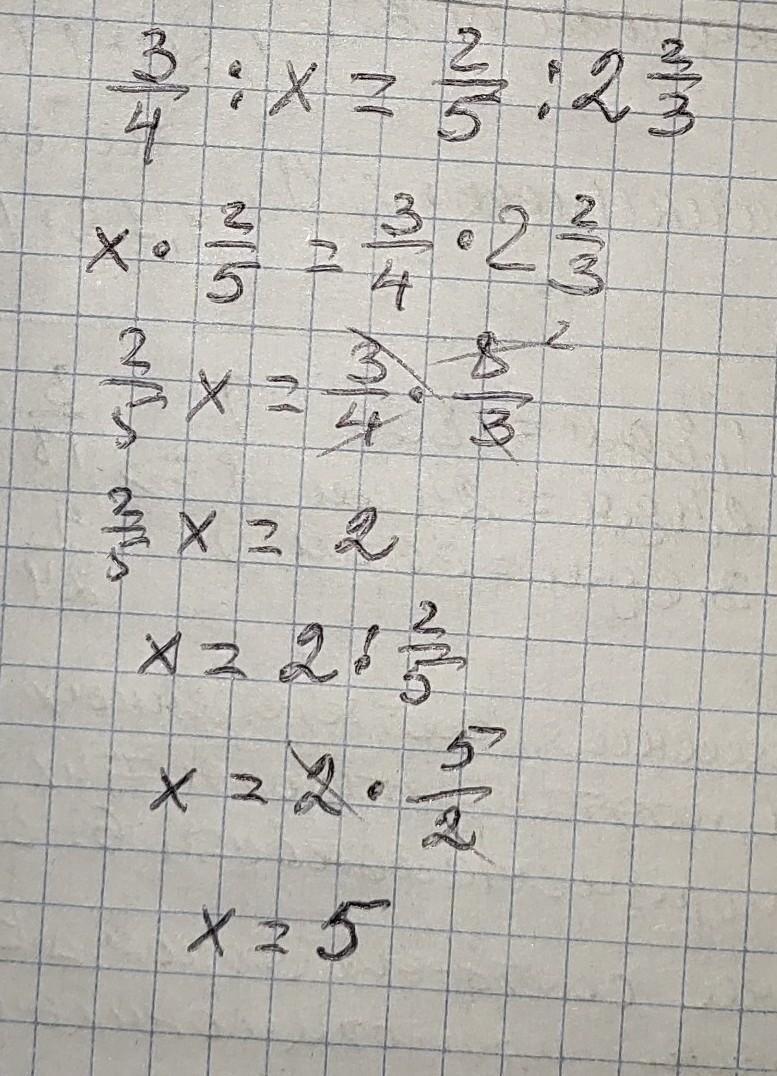 3/4 : x = 2/5 : 2 2/3
x · 2/5 = 3/4 · 2 2/3
2/5 x = 3/4 · 8/3 2
2/5 x = 2
x = 2 : 2/5
x = 2 · 5/2
x = 5